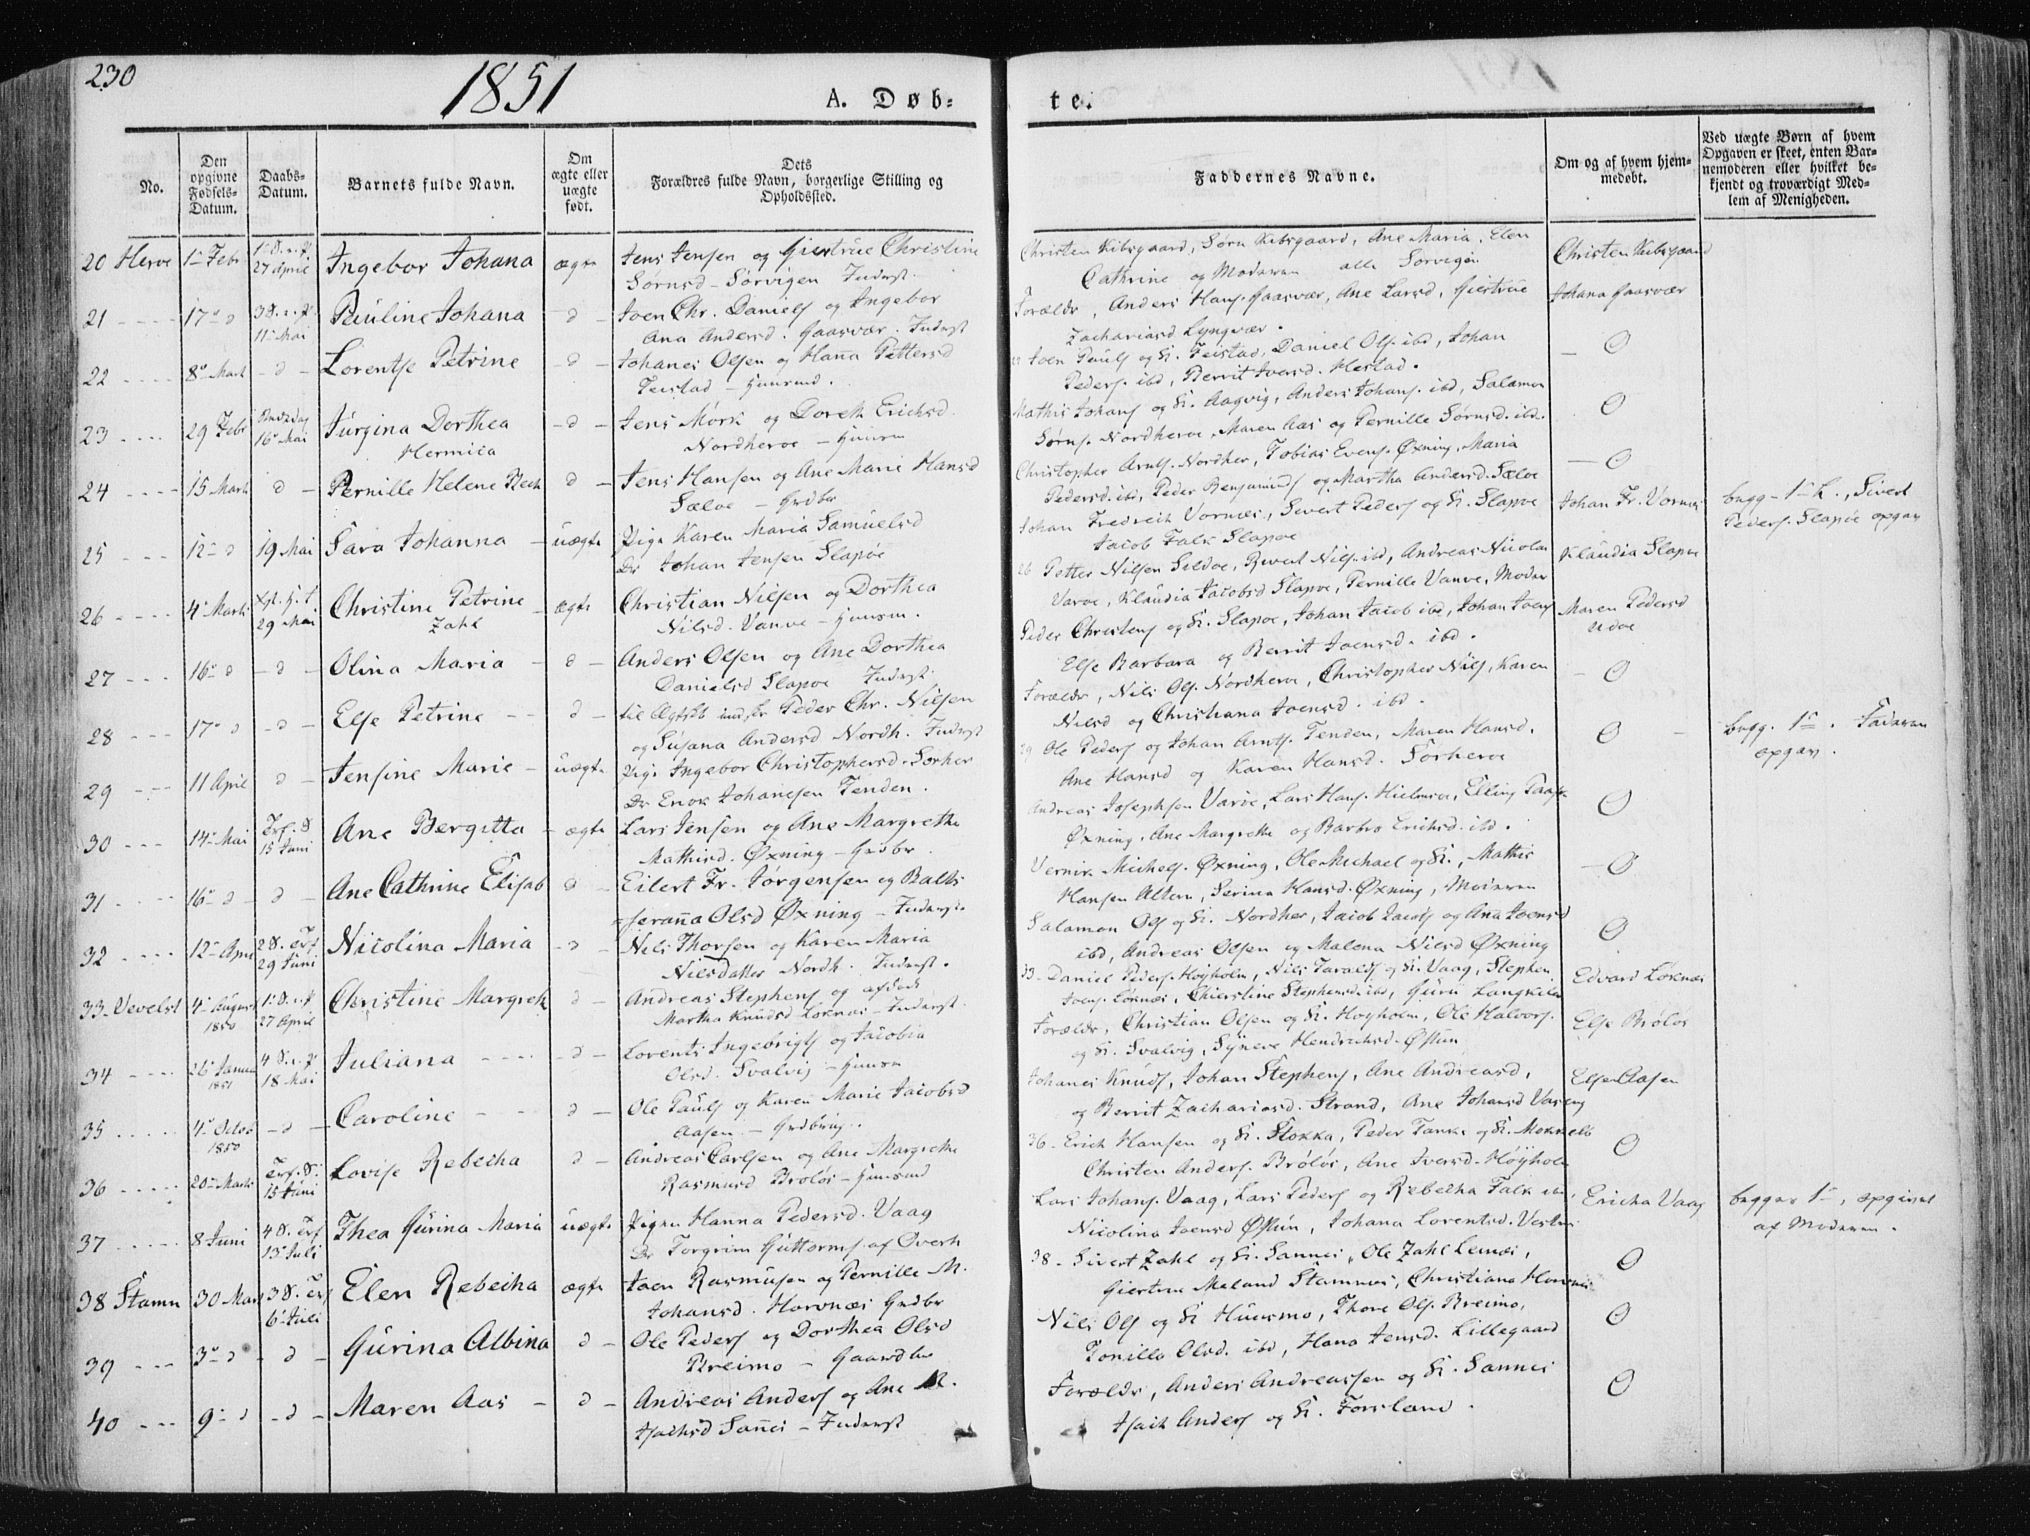 230
1851
A. Døb-
te.
No.
Den opgivne Fødsels-Datum.
Daabs-Datum.
Barnets fulde Navn.
Om ægte eller uægte født.
Dets Forældres fulde Navn, borgerlige Stilling og Opholdssted.
Faddernes Navne.
Om og af hvem hjem-medøbt.
Ved uægte Børn af hvem Opgaven er skeet, enten Bar-nemoderen eller hvilket be-kjendt og troværdigt Med-lem af Menigheden.
20 Herøe 27 April Ingebor Johana ægte Jens Jensen og Giertrue Christine
Sørnsd - Sørvigen Inderst
Christen Kibsgaard, Sørn Kibsgaard, Ane Maria, Elen
Cathrine og Moderen alle Sørvigen
Christen Kibsgaard
21 17 d 11 Mai Pauline Johana d Joen Chr. Daniels og Ingebor
Ana Andersd. Gaasvær. Inderst
Forældr, Anders Hans. Gaasvær, Ane Larsd, Giertrue
Zachariasd Lyngvær.
Johana Gaasvær
22 8 Marts d Lorentse Petrine d Johanes Olsen og Hana Pettersd
Teistad - Huusmd.
Joen Pauls og K. Teistad, Daniel Ols. ibd, Johan
Peders. ibd, Berrit Iversd. Hestad.
O
23 29 Febr 16 Mai Jurgina Dorthea
Hermica
d Jens Mørk og Doreth Erichsd.
Nordherøe - Huusm
Mathis Johans og K. Aagvig, Anders Johans. ibd, Salamon
Sørns. Nordherøe, Maren Aas og Pernille Sørnsd. ibd.
O
24 15 Marts d Pernille Helene d Jens Hansen og Ane Marie Hansd
Sæløe - Grdbr
Christopher Arnts. Nordher, Tobias Evens. Øxning, Maria
Pedersd. ibd, Peder Benjamins og Martha Andersd. Sæløe
O
25 12 d 19 Mai Sara Johanna uægte Pige Karen Maria Samuelsd
Dr Johan Jensen Slapøe
Johan Fredrich Vornæs, Sivert Peders og K. Slapøe
Jacob Falk Slapøe
Johan Fr. Vornes
begg. 1 L., Sivert
Peders. Slapøe opgav
26 4 Marts 29 Mai Christine Petrine
Zahl
ægte Christian Nilsen og Dorthea
Nilsd. - Huusm.
26 Petter Nilsen Seløe, Nils. ibd, Andreas Nicolai
Klaudia Jacobsd Slapøe, Pernille, Moder
Klaudia Slapøe
27 16 d d Olina Maria d Anders Olsen og Ane Dorthea
Danielsd Slapøe Inderst
Peder Christens og K. Slapøe, Johan Jacob ibd, Johan Joens
Else Barbara og Berrit Joensd. ibd.
Maren Pedersd
28 17 d d Else Petrine d Peder Chr. Nilsen
og Susana Andersd Nordh. Inderst
Forældr, Nils Ols. Nordherøe, Christopher Nils, Karen
Nilsd og Christiana Joensd. ibd.
O
29 11 April d Jensine Marie uægte Pige Ingebor Christophersd. Sørher
Dr Enok Johanesen Tenden.
29 Ole Peders og Johan Arnts. Tenden, Maren Hansd.
Ane Hansd og Karen Hansd. Sørherøe
O
begg. 1. Faderen
opgav.
30 14 Mai 15 Juni Ane Bergitta ægte Lars Jensen og Ane Margrethe
Mathisd. Øxning - Grdbr.
Andreas Josephsen, Lars Hans.
Øxning, Ane Margrethe og Barbro Erichsd. ibd.
O
31 16 d d Ane Cathrine Elisab d Eilert Fr. Jørgensen og
Olsd Øxning - Inderst.
Michels. Øxning, Ole Michael og K., Mathis
Hansen Alteren, Serina Hansd. Øxning, Moderen
O
32 12 April 29 Juni Nicolina Maria d Nils Thorsen og Karen Maria
Nilsdatter Nordh. Inderst.
Salamon Ols og K. Nordher, Jacob og Ana Joensd
ibd, Andreas Olsen og Malena Nilsd Øxning
O
33 Vevelst 4 August
1850
27 April Christine Margreth d Andreas Stephens og
Martha Knudsd Løknæs - Inderst
33 - Daniel Peders. Høyholm, Nils og K. Vaag, Stephen
Joens. Løknæs, Chierstine Stephensd. ibd, Guru
Edvard Løknæs
34 26 Januar
1851
18 Mai Juliana d Lorents Ingebrigts og Jacobia
Olsd. Svalvig - Huusm
Forældr, Christian Olsen og K. Høyholm, Ole Halvors.
og K. Svalvig, Hendrichsd.
Else Brøløs
35 4 Octob
1850
d Caroline d Ole Pauls og Karen Marie Jacobsd
Aasen - Grdbrug.
Johanes Knuds, Johan Stephens, Ane Andreasd,
og Berrit Zachariasd. Strand, Ane Johansd
Else Aasen
36 20 Marts 15 Juni Lovise Rebecha d Andreas Carlsen og Ane Margrethe
Rasmusd Brøløs - Huusmd
36 - Erich Hansen og K. Stokka, Peder og K.
Christen Anders. Brøløs, Ane Iversd. Høyholm
O
37 8 Juni 13 Juli Thea Gurina Maria uægte Pigen Hanna Pedersd. Vaag
Dr Torgrim Guttorms.
Lars Johans. Vaag, Lars Peders og Rebecha Falk ibd,
Nicolina Joensd, Johana Lorentsd.
Ericha Vaag
begges 1, opgivet
af Moderen.
38 Stamn 30 Marts 6 Juli Elen Rebecha ægte Joen Rasmusen og Pernille M.
Johansd. Horvnæs Grdbr
38 - Sivert Zahl og K. Sannes, Ole Zahl Lenæs,
Stamnes, Christiana
O
39 3 d d Gurina Albina d Ole Peders og Dorthea Olsd
Breimo - Gaardbr
Nils Ols og K. Huusmo, Thore Ols. Breimo,
Tonilla Olsd. ibd, Hana Jensd. Lillegaard
O
40 9 d d Maren Aas d Andreas Anders og Ane M.
Isachsd Sannes - Inderst
Forældr, Anders Andreassen og K. Sannes
Isach Anders og K. Forsland.
O